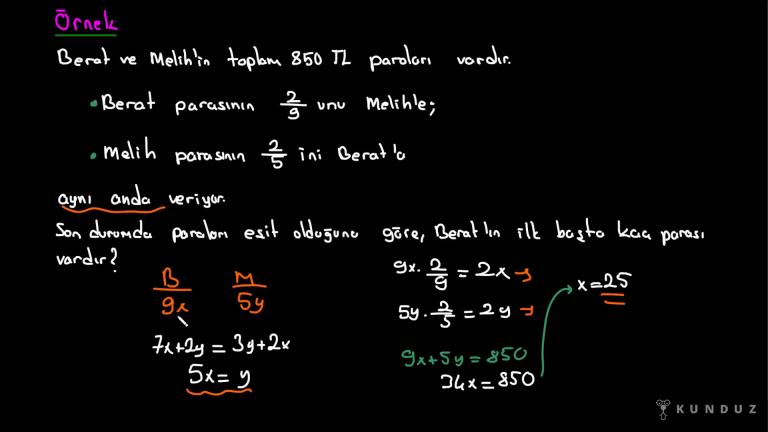 Örnek
Berat ve Melih'in toplam 850 TL paraları vardır.
• Berat parasının 2/9 unu Melih'e;
• Melih parasının 2/5 ini Berat'a
aynı anda veriyor.
Son durumda paraları eşit olduğuna göre, Berat'ın ilk başta kaç parası
vardır?
B M
9x 5y
7x+2y = 3y+2x
5x = y
9x · 2/9 = 2x →
5y · 2/5 = 2y →
9x+5y = 850
34x = 850
x = 25
KUNDUZ